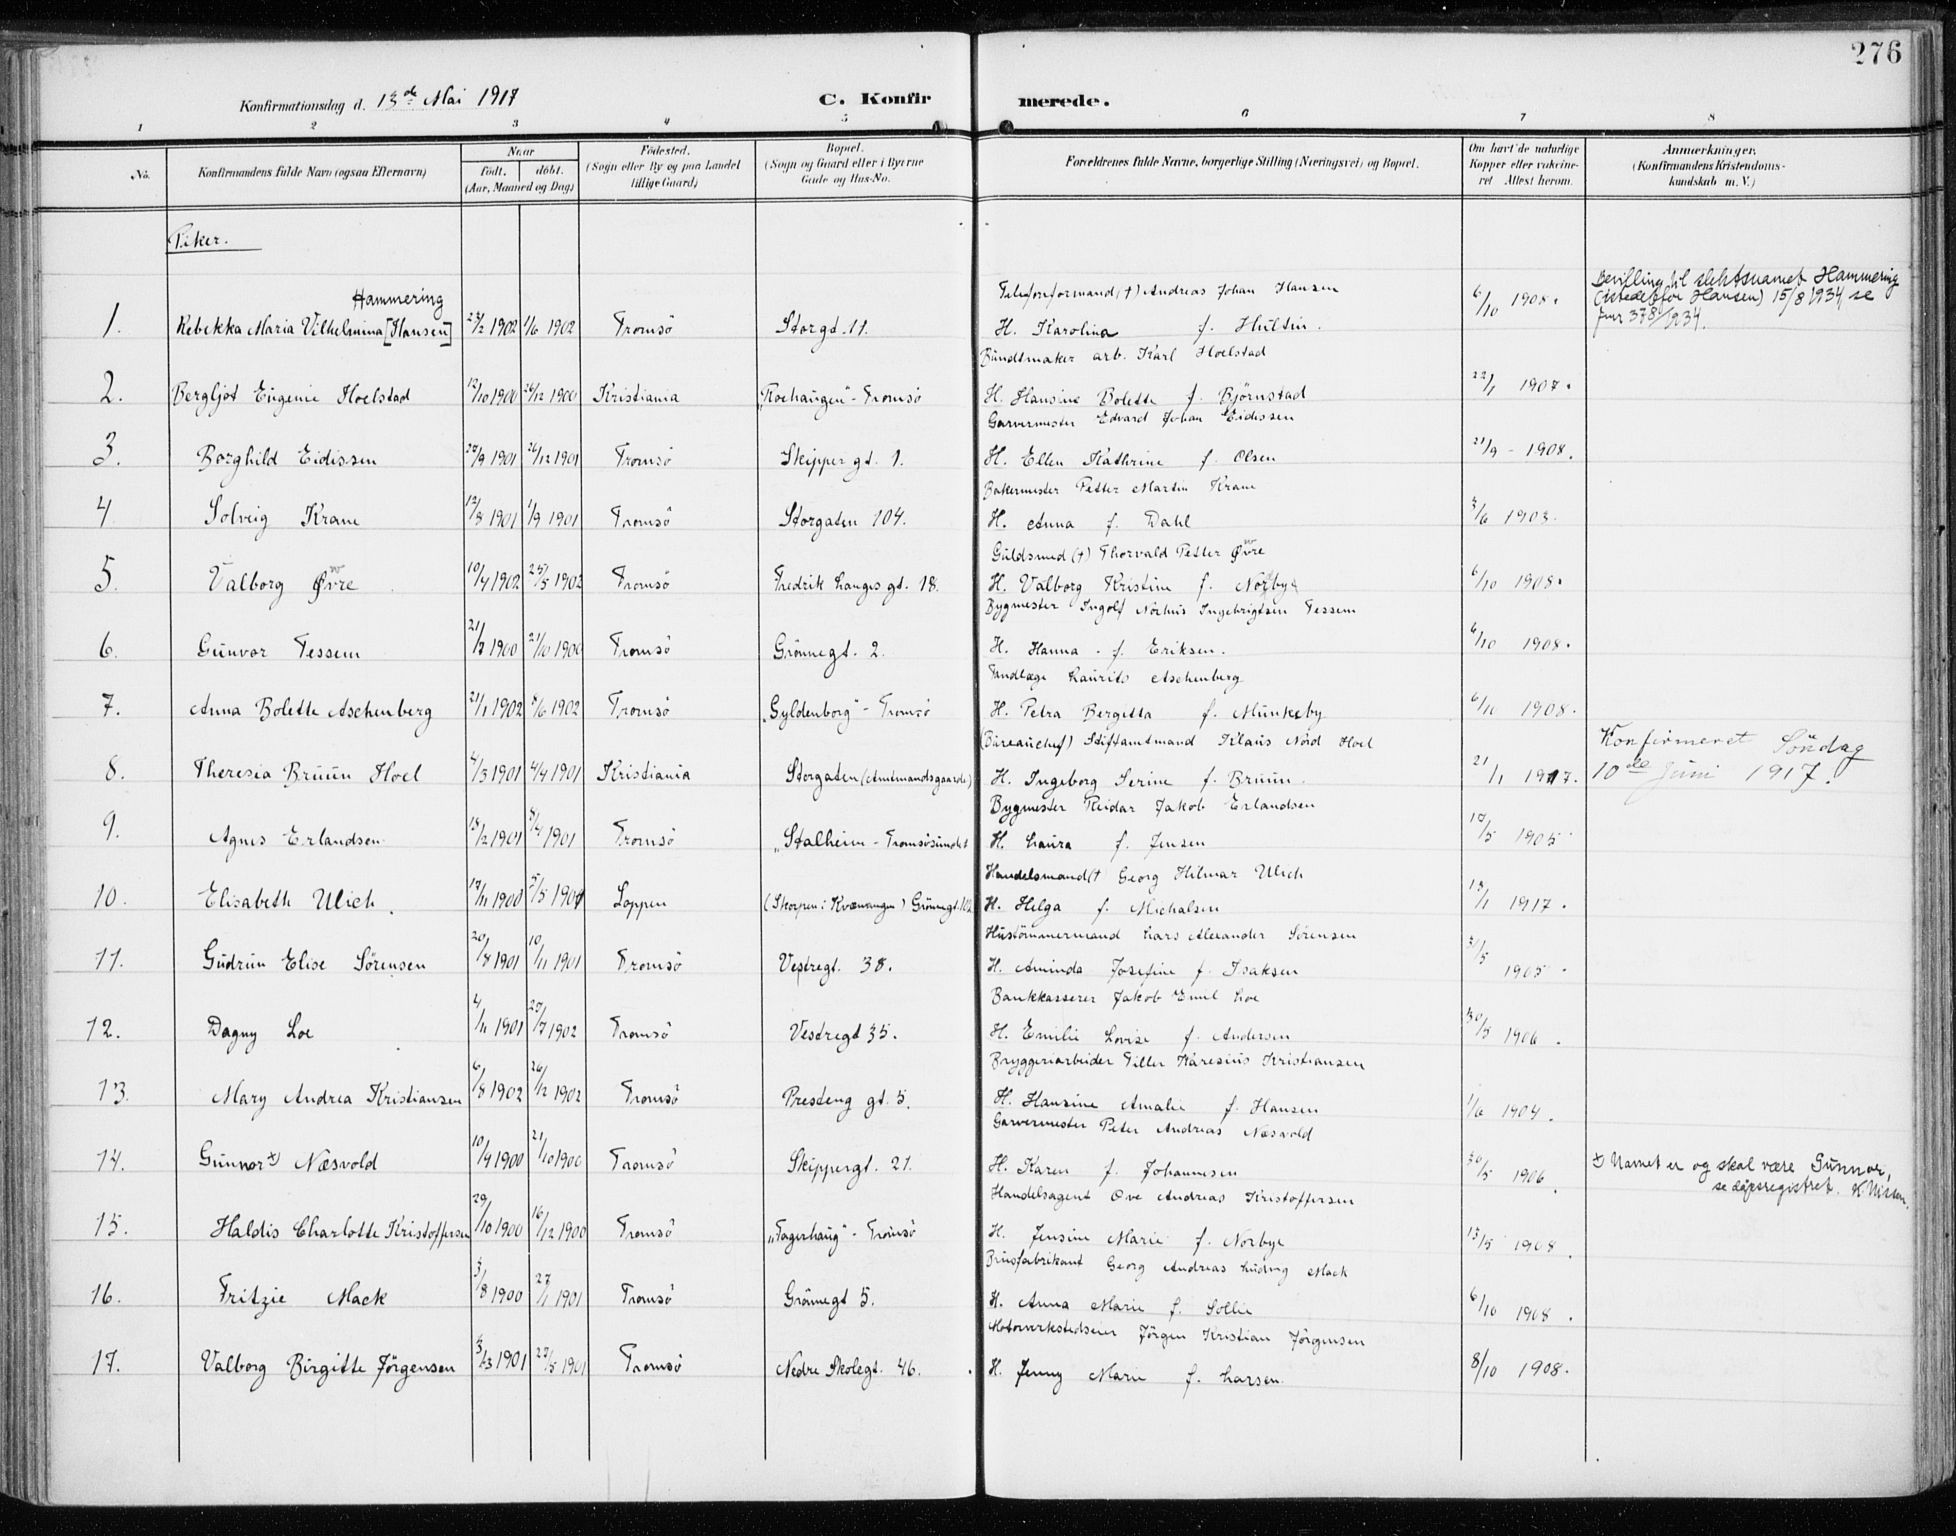 276
Konfirmationsdag d. 13de Mai 1917
C. Konfirmerede.
1 2 3 4 5 6 7 8
No. Konfirmandens fulde Navn (ogsaa Efternavn)
Naar født. døbt. (Aar, Maaned og Dag)
Fødested. (Sogn eller By og paa Landet tillige Gaard)
Bopæl. (Sogn og Gaard eller i Byerne Gade og Hus-No.
Forældrenes fulde Navne, borgerlige Stilling (Næringsvei) og Bopæl.
Om havt de naturlige Kopper eller vakcineret Attest herom.
Anmærkninger. (Konfirmandens Kristendomskundskab m. V.)
Piker.
Hammering
1. Rebekka Maria Vilhelmina [Hansen] 23/2 1902 1/6 1902 Tromsö Storgt. 11. Telefonformand (†) Andreas Johan Hansen
H. Karolina f. Hultin. 6/10 1908. Bevilling til slektsnavnet Hammering
(istedetfor Hansen) 15/8 1934 se
jnr 378/1934.
2. Bergljot Eugenie Hoelstad 12/10 1900 26/12 1900 Kristiania "Roehaugen" - Tromsö Bundtmaker arb. Karl Hoelstad
H. Hansine Bolette f. Bjørnstad 22/1 1907.
3. Borghild Eidissen 20/9 1901 26/12 1901 Tromsö Skippergt. 1. Garvermester Edvard Johan Eidissen
H. Ellen Kathrine f. Olsen 21/9 - 1908.
4. Solveig Krane 12/8 1901 1/9 1901 Tromsö Storgaten 104. Bakermester Petter Martin Krane
H. Anna f. Dahl 3/6 1903.
5. Valborg Øvre 10/4 1902 25/5 1902 Tromsö Fredrik Langes gt. 18. Guldsmed (†) Thorvald Petter Øvre
H. Valborg Kristine f. Norbye 6/10 1908.
6. Gunvor Tessem 21/7 1900 21/10 1900 Tromsö Grönnegt. 2. Bygmester Ingolf Nörhus Ingebrigtsen Tessem
H. Hanna - f. Eriksen. 6/10 1908.
7. Anna Bolette Aschenberg 21/1 1902 8/6 1902 Tromsö "Gyldenborg" - Tromsö Tandlæge Laurits Aschenberg
H. Petra Bergitta f. Munkeby 6/10 1908.
8. Theresia Bruun Hoel 4/3 1901 4/4 1901 Kristiania Storgaten (Amtmandsgaarde) (Bureauchef) Stiftamtmand Klaus Nord Hoel
H. Ingeborg Serine f. Bruun. 21/1 1917. Konfirmeret Söndag
10de Juni 1917.
9. Agnes Erlandsen 18/2 1901 8/4 1901 Tromsö "Stalheim - Tromsösundet Bygmester Reidar Jakob Erlandsen
H. Laura f. Jensen 17/5 1905
10. Elisabeth Ulich 17/11 1900 5/5 1901 Loppen (Skorpen i Kvænangen) Grönnegt. 102 Handelsmand († Georg Hilmar Ulich
H. Helga f. Michalsen 13/1 1917.
11. Gudrun Elise Sörensen 20/8 1901 10/11 1901 Tromsö Vestregt. 38. Hustömmermand Lars Alexander Sörensen
H. Aminda Josefine f. Isaksen 31/5 1905.
12. Dagny Loe 4/11 1901 20/7 1902 Tromsö Vestregt 35. Bankkasserer Jakob Emil Loe
H. Emilie Lovise f. Andersen 30/5 1906.
13. Mary Andrea Kristiansen 6/8 1902 26/12 1902 Tromsö Presteng gt. 5. Bryggeriarbeider Tiller Karesius Kristiansen
H. Hansine Amalie f. Hansen 1/6 1904.
14. Gunnor x) Næsvold 10/9 1900 21/10 1900 Tromsö Skippergt. 21. Garvermester Peter Andreas Næsvold
H. Karen f. Johannesen 30/5 1906. x) Navnet er og skal være Gunnor,
se dåpsregistret. K. Nissen.
15. Haldis Charlotte Kristoffersen 29/10 1900 16/12 1900 Tromsö "Fagerhaug" - Tromsö Handelsagent Ove Andreas Kristoffersen
H. Jensine Marie f. Norbye 13/5 1908.
16. Fritzie Mack 3/8 1900 27/1 1901 Tromsö Grönnegt 5. Brusfabrikant Georg Andreas Ludvig Mack
H. Anna Marie f. Sollie 6/10 1908.
17. Valborg Birgitte Jörgensen 3/3 1901 27/5 1901 Tromsö Nedre Skolegt. 46. Motorverkstedseier Jörgen Kristian Jörgensen
H. Jenny Marie f. Larsen. 8/10 1908.